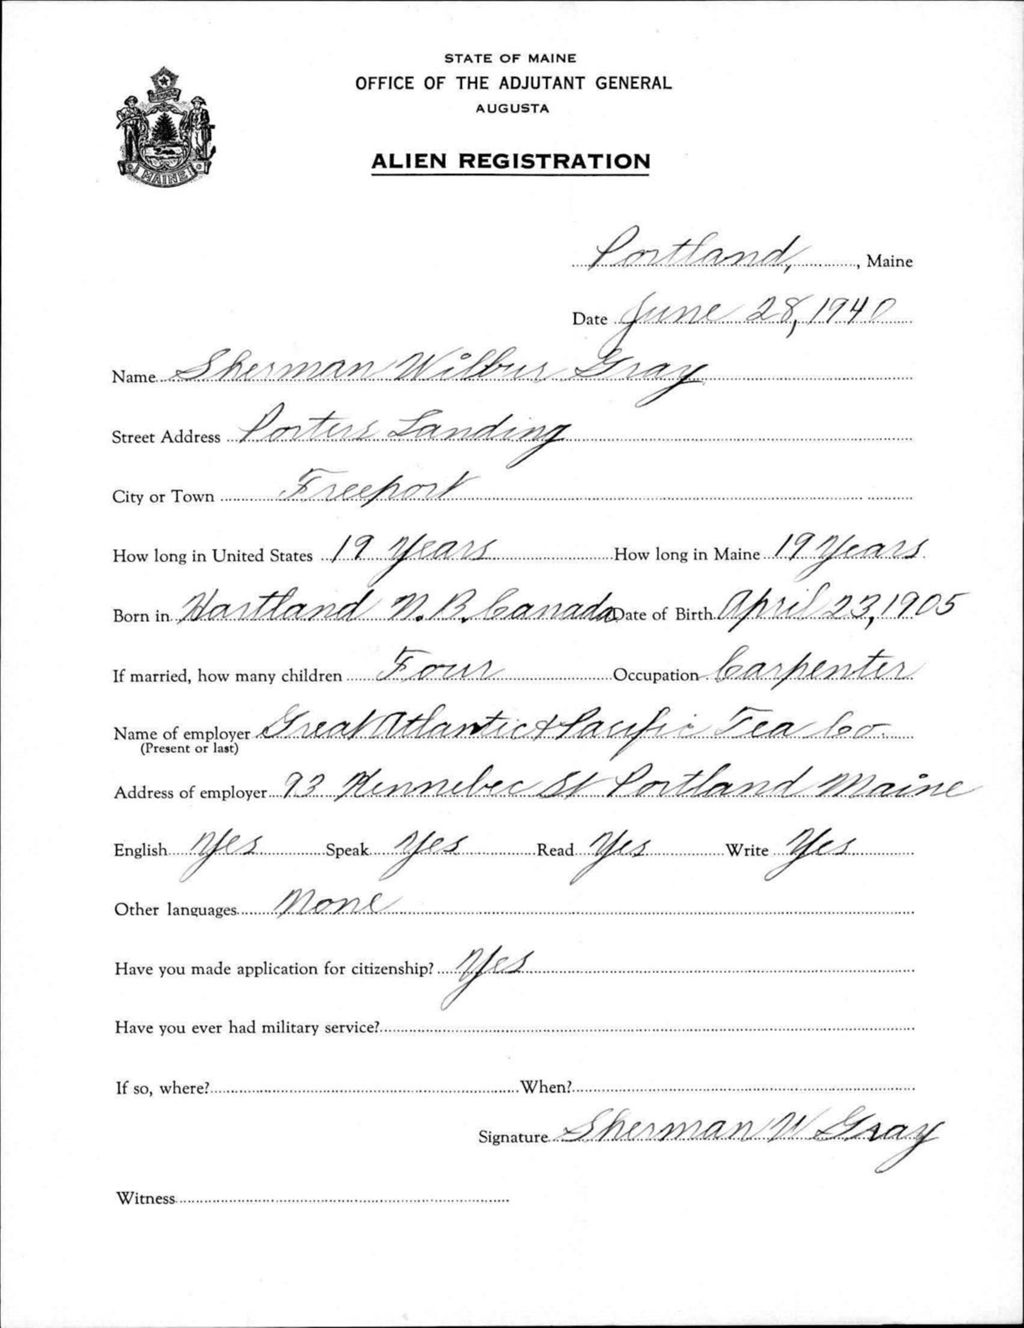 STATE OF MAINE
OFFICE OF THE ADJUTANT GENERAL
AUGUSTA
ALIEN REGISTRATION
MAINE
Portland, , Maine
Date June 28, 1940
Name Sherman Wilbur Gray
Street Address Porters Landing
City or Town Freeport
How long in United States 19 Years How long in Maine 19 Years
Born in Hartland N.B. Canada Date of Birth April 23, 1905
If married, how many children Four Occupation Carpenter
Name of employer Great Atlantic & Pacific Tea Co.
(Present or last)
Address of employer 93 Kennebec St Portland Maine
English Yes Speak Yes Read Yes Write Yes
Other languages None
Have you made application for citizenship? Yes
Have you ever had military service?
If so, where? When?
Signature Sherman W Gray
Witness